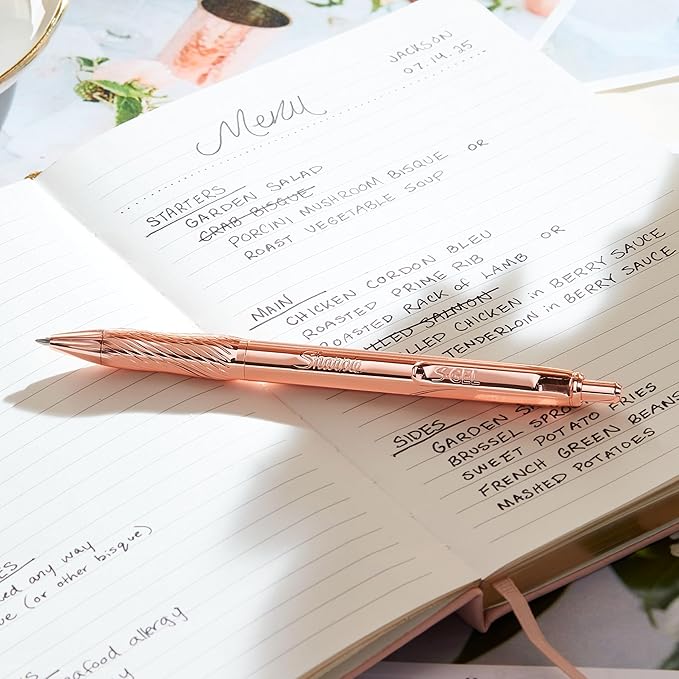 JACKSON
07.14.25
Menu
STARTERS
GARDEN SALAD
CRAB BISQUE
PORCINI MUSHROOM BISQUE OR
ROAST VEGETABLE SOUP
MAIN
CHICKEN CORDON BLEU
ROASTED PRIME RIB
ROASTED RACK of LAMB OR
LLED SALMON
LLED CHICKEN in BERRY SAUCE
TENDERLOIN in BERRY SAUCE
Sharpie S·GEL
SIDES
GARDEN
BRUSSEL SPROU
SWEET POTATO FRIES
FRENCH GREEN BEANS
MASHED POTATOES
ES
ed any way
e (or other bisque)
eafood allergy